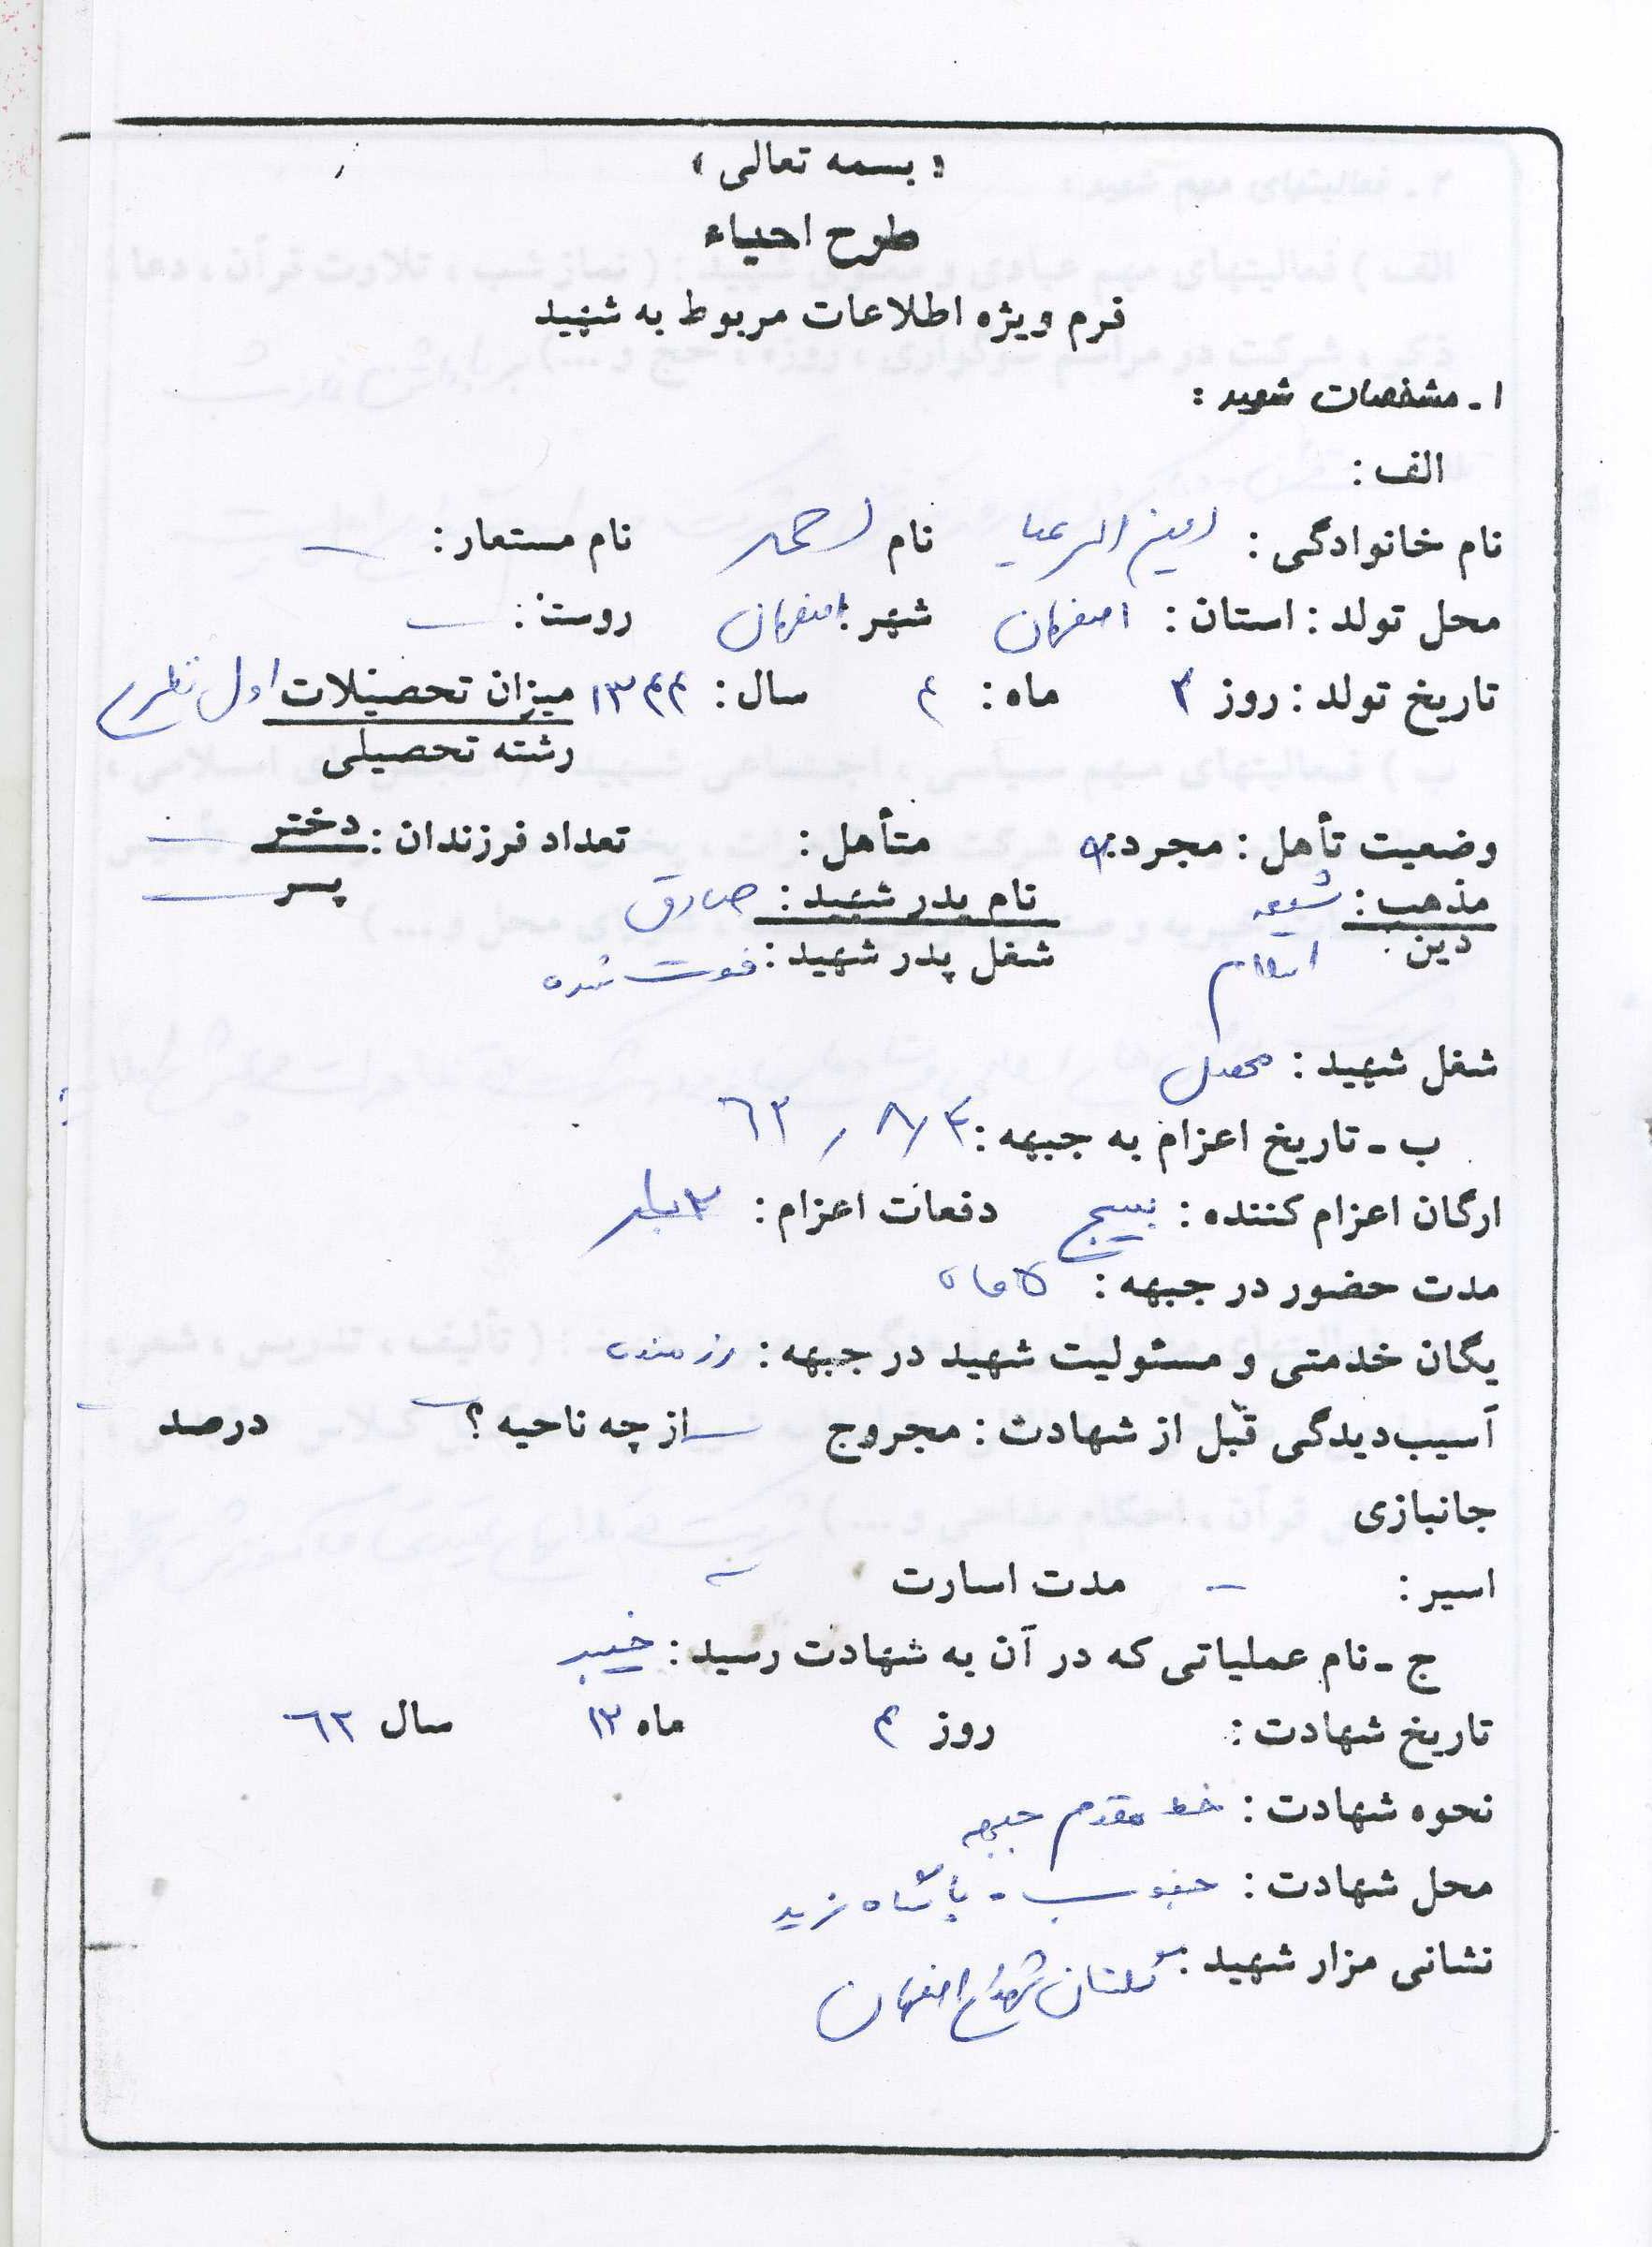 « بسمه تعالی »
طرح احیاء
فرم ویژه اطلاعات مربوط به شهید
۱ ـ مشخصات شهید :
الف :
نام خانوادگی : امین الرعایا نام احمد نام مستعار : ـ
محل تولد : استان : اصفهان شهر : اصفهان روستا : ـ
تاریخ تولد : روز ۳ ماه : ۴ سال : ۱۳۴۴ میزان تحصیلات اول نظری
رشته تحصیلی
وضعیت تأهل : مجرد : متأهل : تعداد فرزندان : دختر ـ
پسر ـ
مذهب : شیعه نام پدر شهید : صادق
دین : اسلام شغل پدر شهید : فوت شده
شغل شهید : محصل
ب ـ تاریخ اعزام به جبهه :
ارگان اعزام کننده : بسیج دفعات اعزام : بار
مدت حضور در جبهه : ماه
یگان خدمتی و مسئولیت شهید در جبهه : رزمنده
آسیب‌دیدگی قبل از شهادت : مجروح ـ از چه ناحیه ؟ ـ درصد
جانبازی
اسیر : ـ مدت اسارت ـ
ج ـ نام عملیاتی که در آن به شهادت رسید : خیبر
تاریخ شهادت : روز ۴ ماه ۱۲ سال ۶۲
نحوه شهادت : خط مقدم جبهه
محل شهادت : جنوب - پاسگاه زید
نشانی مزار شهید : گلستان شهدای اصفهان